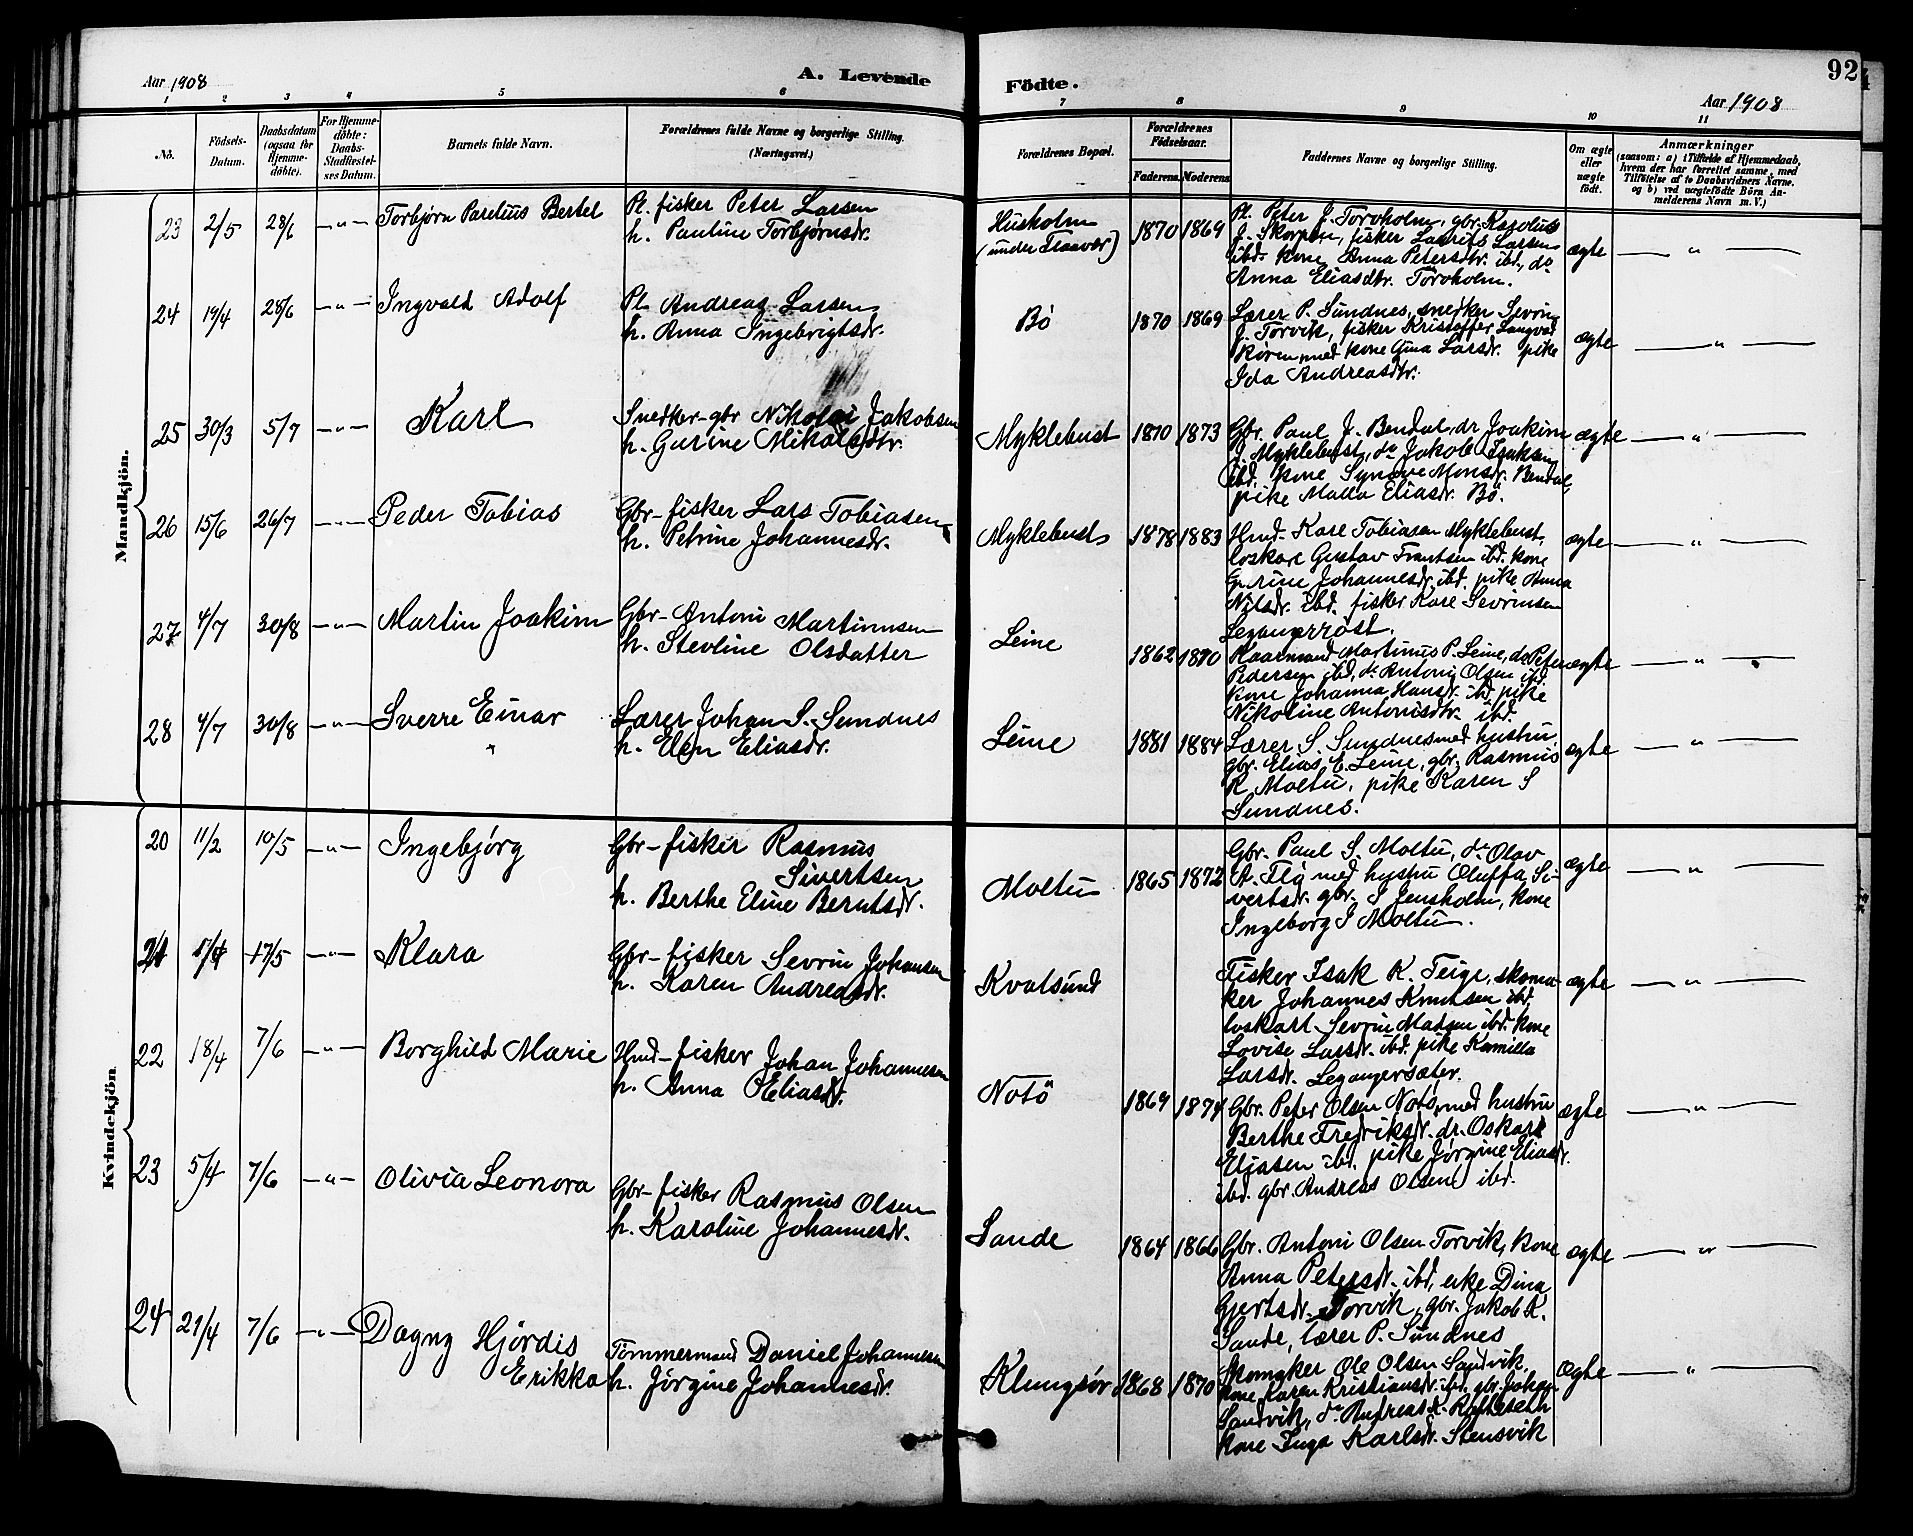 Aar 1908
A. Levende
Födte.
92
Aar 1908
1 2 3 4 5 6 7 8 9 10 11
No.
Födsels-
Datum.
Daabsdatum
(ogsaa for
Hjemme-
döbte).
For Hjemme-
döbte:
Daabs-
Stadfæstel-
ses Datum.
Barnets fulde Navn.
Forældrenes fulde Navne og borgerlige Stilling.
(Næringsvei.)
Forældrenes Bopæl.
Forældrenes
Födselsaar.
Faderens. Moderens.
Faddernes Navne og borgerlige Stilling.
Om ægte
eller
uægte
födt.
Anmærkninger
(saasom: a) i Tilfælde af Hjemmedaab,
hvem der har forrettet samme, med
Tilföielse af to Daabsvidners Navne,
og b) ved uægtefödte Börn An-
melderens Navn m. V.)
Mandkjön.
23 2/5 28/6 -"- Torbjørn Parelius Bertel
Pl. fisker Peter Larsen
h. Pauline Torbjørnsdr.
Husholm
(under Flaavær)
1870 1869
Pl. Peter J. Torvholm, gbr. Karolus
J. Skorpen, fisker Laurits Larsen
ibd. kone Anna Petersdtr. ibd., do
Anna Eliasdtr. Torvholm.
ægte — " —
24 19/4 28/6 -"- Ingvald Adolf
Pl. Andreas Larsen
h. Anna Ingebrigtsdr.
Bö
1870 1869
Lærer P. Sundnes, snedker Sevrin
J. Torvik, fisker Kristoffer Langva
Røren med kone Gina Larsdr. pike
Ida Andreasdtr.
ægte — " —
25 30/3 5/7 -"- Karl
Snedker-gbr Nikolai Jakobsen
h. Gurine Mikalsdtr.
Myklebust
1870 1873
Gbr. Paul J. Bendal, dr Joakim
J. Myklebust, do Jakob Isaksen
ibd. kone Synøve Monsdr. Bendal,
pike Malla Eliasdr. Bö.
ægte — " —
26 15/6 26/7 -"- Peder Tobias
Gbr-fisker Lars Tobiasen
h. Petrine Johannesdr.
Myklebust
1878 1883
Hmd. Karl Tobiasen Myklebust,
løskarl Gustav Frantsen ibd. kone
Gurine Johannesdr. ibd. pike Anna
Nilsdr. ibd. fisker Karl Sevrinsen
Leganger röst.
ægte — " —
27 4/7 30/8 -"- Martin Joakim
Gbr-Antoni Martinusen
h. Stevline Olsdatter
Leine
1862 1870
Kaarmand Martinus P. Leine, do Peter
Pedersen ibd, do Antoni Olsen ibd
kone Johanna Hansdr. ibd. pike
Nikoline Antonisdtr. ibd.
ægte — " —
28 4/7 30/8 -"- Sverre Einar
Lærer Johan S. Sundnes
h. Elen Eliasdr.
Leine
1881 1884
Lærer S. Sundnes med hustru
gbr. Elias E. Leine, gbr. Rasmus
R. Moltu, pike Karen S
Sundnes.
ægte — " —
Kvindekjön
20 11/2 10/5 -"- Ingebjørg
Gbr-fisker Rasmus
Sivertsen
h. Berthe Eline Berntsdr.
Moltu
1865 1872
Gbr. Paul S. Moltu, do Olav
A. Flø med hustru Oluffa Si-
vertsdr. gbr. S Jensholm, kone
Ingeborg S Moltu.
ægte — " —
21 17/5 -"- Klara
Gbr-fisker Sevrin Johansen
h. Karen Andreasdr.
Kvalsund
Fisker Isak K. Teige, skoma-
ker Johannes Knutsen ibd,
løskarl Sevrin Madsen ibd. kone
Lovise Larsdr. ibd. pike Kamilla
Larsdr. Legangersæter.
ægte — " —
22 18/4 7/6 -"- Borghild Marie
Hmd-fisker Johan Johannesen
h. Anna Eliasdr.
Notö
1869 1874
Gbr. Peter Olsen Notö, med hustru
Berthe Fredriksdr. dr. Oskar
Eliasen ibd. pike Jørgine Eliasdr.
ibd. gbr. Andreas Olsen ibd.
ægte — " —
23 5/4 7/6 -"- Olivia Leonora
Gbr-fisker Rasmus Olsen
h. Karoline Johannesdr.
Sande
1864 1866
Gbr. Antoni Olsen Torvik, kone
Anna Petersdr. ibd, enke Dina
Gjertsdr. Torvik, gbr. Jakob K.
Sande, lærer P. Sundnes
ægte — " —
24 21/4 7/6 -"- Dagny Hjørdis
Erikka
Tømmermand Daniel Johannesen
h. Jørgine Johannesdr.
Klungsör
1868 1870
Skomaker Ole Olsen Sandvik,
kone Karen Kristiansdr. ibd. gbr. Johan
Sandvik, do Andreas K. Rafteseth
kone Inga Karlsdr. Stensvik
ægte — " —